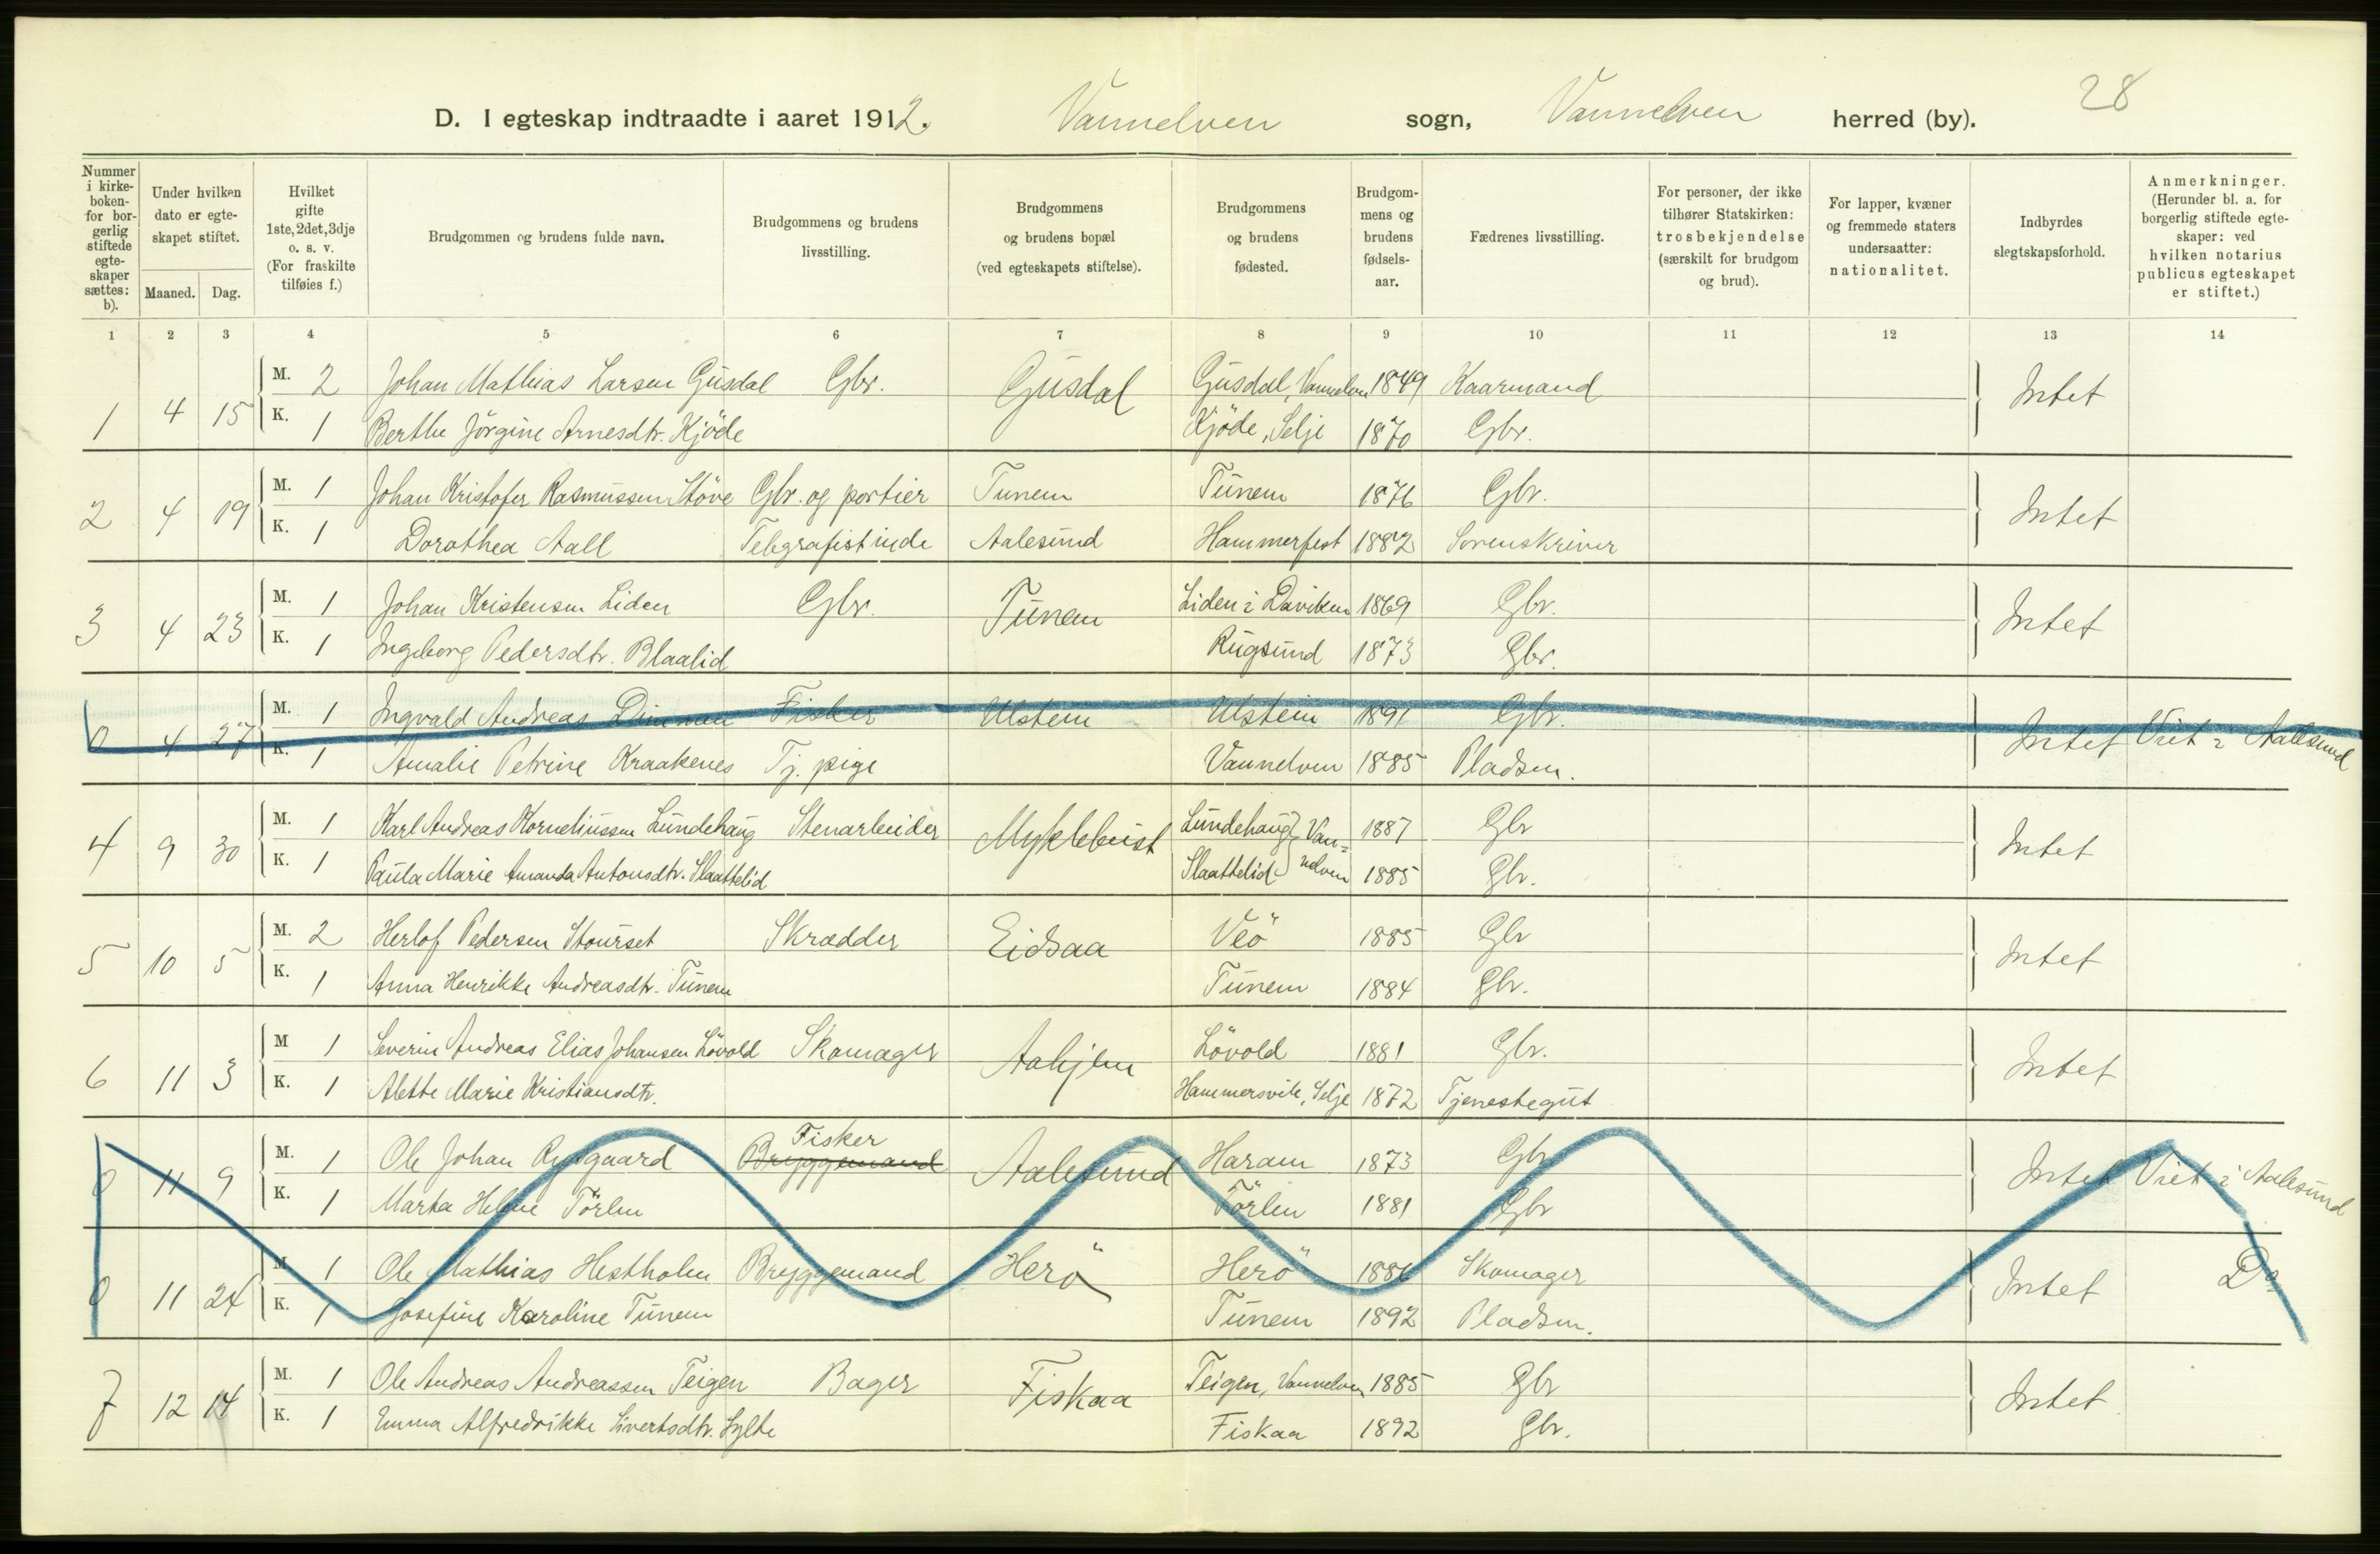 28
D. I egteskap indtraadte i aaret 1912. Vannelven sogn, Vannelven herred (by).
Nummer i kirke-boken- for bor-gerlig stiftede egte-skaper sættes: b).
Under hvilken dato er egte-skapet stiftet.
Maaned. Dag.
Hvilket gifte 1ste, 2det, 3dje o. s. v. (For fraskilte tilføies f.)
Brudgommen og brudens fulde navn.
Brudgommens og brudens livsstilling.
Brudgommens og brudens bopæl (ved egteskapets stiftelse).
Brudgommens og brudens fødested.
Brudgom-mens og brudens fødsels-aar.
Fædrenes livsstilling.
For personer, der ikke tilhører Statskirken: trosbekjendelse (særskilt for brudgom og brud).
For lapper, kvæner og fremmede staters undersaatter: nationalitet.
Indbyrdes slegtskapsforhold.
Anmerkninger. (Herunder bl. a. for borgerlig stiftede egte-skaper: ved hvilken notarius publicus egteskapet er stiftet.)
1 2 3 4 5 6 7 8 9 10 11 12 13 14
1 4 15 M. 2 Johan Mathias Larsen Gusdal Gbr. Gusdal Gusdal, Vannelven 1849 Kaarmand Intet
K. 1 Berthe Jörgine Arnesdtr. Kjöde Kjöde, Selje 1870 Gbr.
2 4 19 M. 1 Johan Kristofer Rasmussen Stöve Gbr. og portier Tunem Tunem 1876 Gbr. Intet
K. 1 Dorothea Aall Telegrafistinde Aalesund Hammerfest 1882 Sorenskriver
3 4 23 M. 1 Johan Kristensen Liden Gbr. Tunem Liden i Daviken 1869 Gbr. Intet
K. 1 Ingeborg Pedersdtr. Blaalid Rugsund 1873 Gbr.
0 4 27 M. 1 Ingvald Andreas Dimmen Fisker Ulstein Ulstein 1891 Gbr. Intet Viet i Aalesund
K. 1 Amalie Petrine Kraakenes Tj. pige Vannelven 1885 Pladsm.
4 9 30 M. 1 Karl Andreas Korneliussen Lundehaug Stenarbeider Myklebust Lundehaug } Van= 1887 Gbr Intet
K. 1 Paula Marie Amanda Antonsdtr. Slaattelid Slaattelid nelven 1885 Gbr.
5 10 5 M. 2 Herlof Pedersen Stourset Skrædder Eidsaa Veö 1885 Gbr Intet
K. 1 Anna Henrikke Andreasdtr. Tunem Tunem 1884 Gbr.
6 11 3 M 1 Severin Andreas Elias Johansen Lövold Skomager Aahjem Lövold 1881 Gbr. Intet
K. 1 Alette Marie Kristiansdtr. Hammersvik, Selje 1872 Tjenestegut
0 11 9 M. 1 Ole Johan Fisker Bryggemand Aalesund Haram 1873 Gbr Intet Viet i Aalesund
K. 1 Marta Helene Törlen Törlen 1881 Gbr
0 11 24 M 1 Ole Mathias Hestholm Bryggemand Herö Herö Skomager Intet Do
K. 1 Josefine Karoline Tunem Tunem 1892 Pladsm.
7 12 14 M. 1 Ole Andreas Andreassen Teigen Bager Fiskaa Teigen, Vannelven 1885 Gbr Intet
K. 1 Emma Alfredrikke Sivertsdtr. Sylte Fiskaa 1892 Gbr.